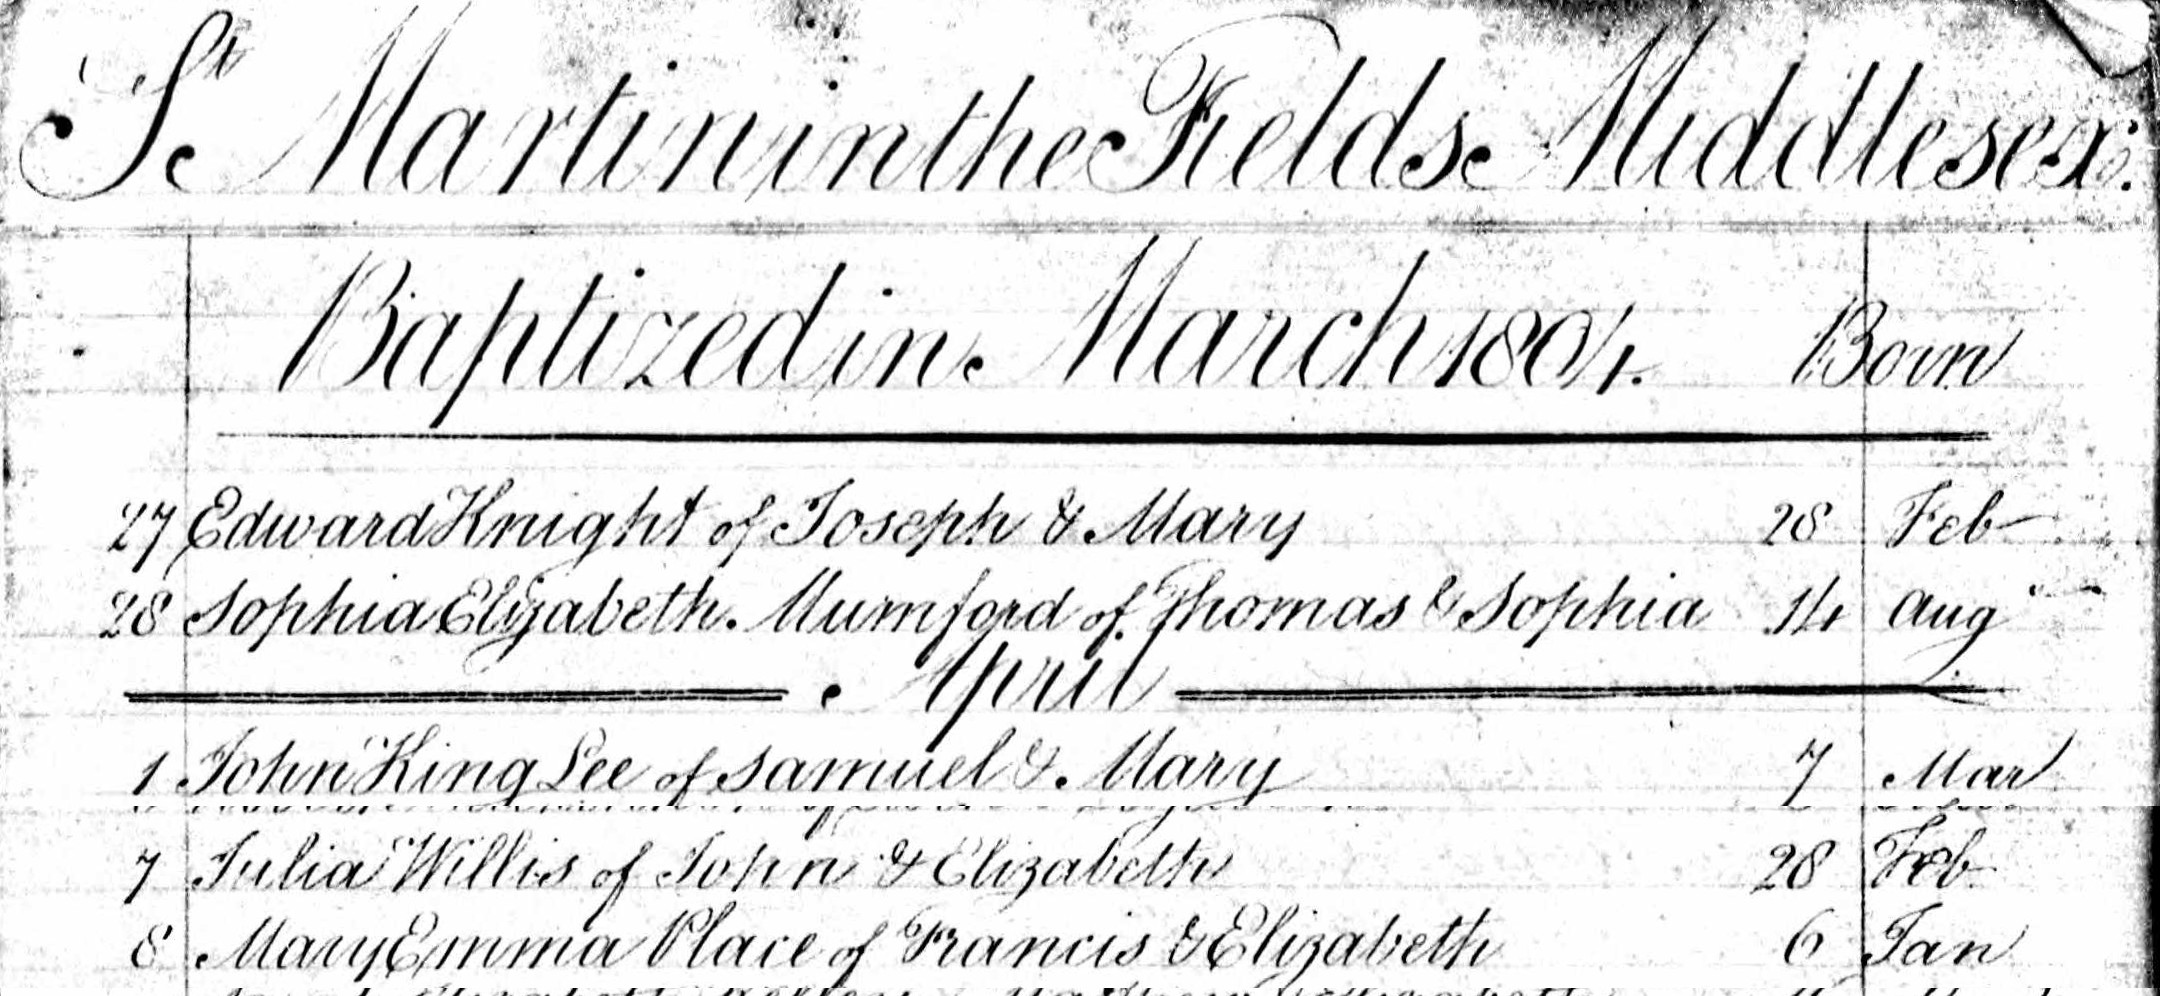 St Martin in the Fields Middlesex.
Baptized in March 1804. Born
27 Edward Knight of Joseph & Mary 28 Feb
28 Sophia Elizabeth Mumford of Thomas & Sophia 14 Aug
April
1 John King Lee of Samuel & Mary 7 Mar
7 Julia Willis of John & Elizabeth 28 Feb
8 Mary Emma Place of Francis & Elizabeth 6 Jan